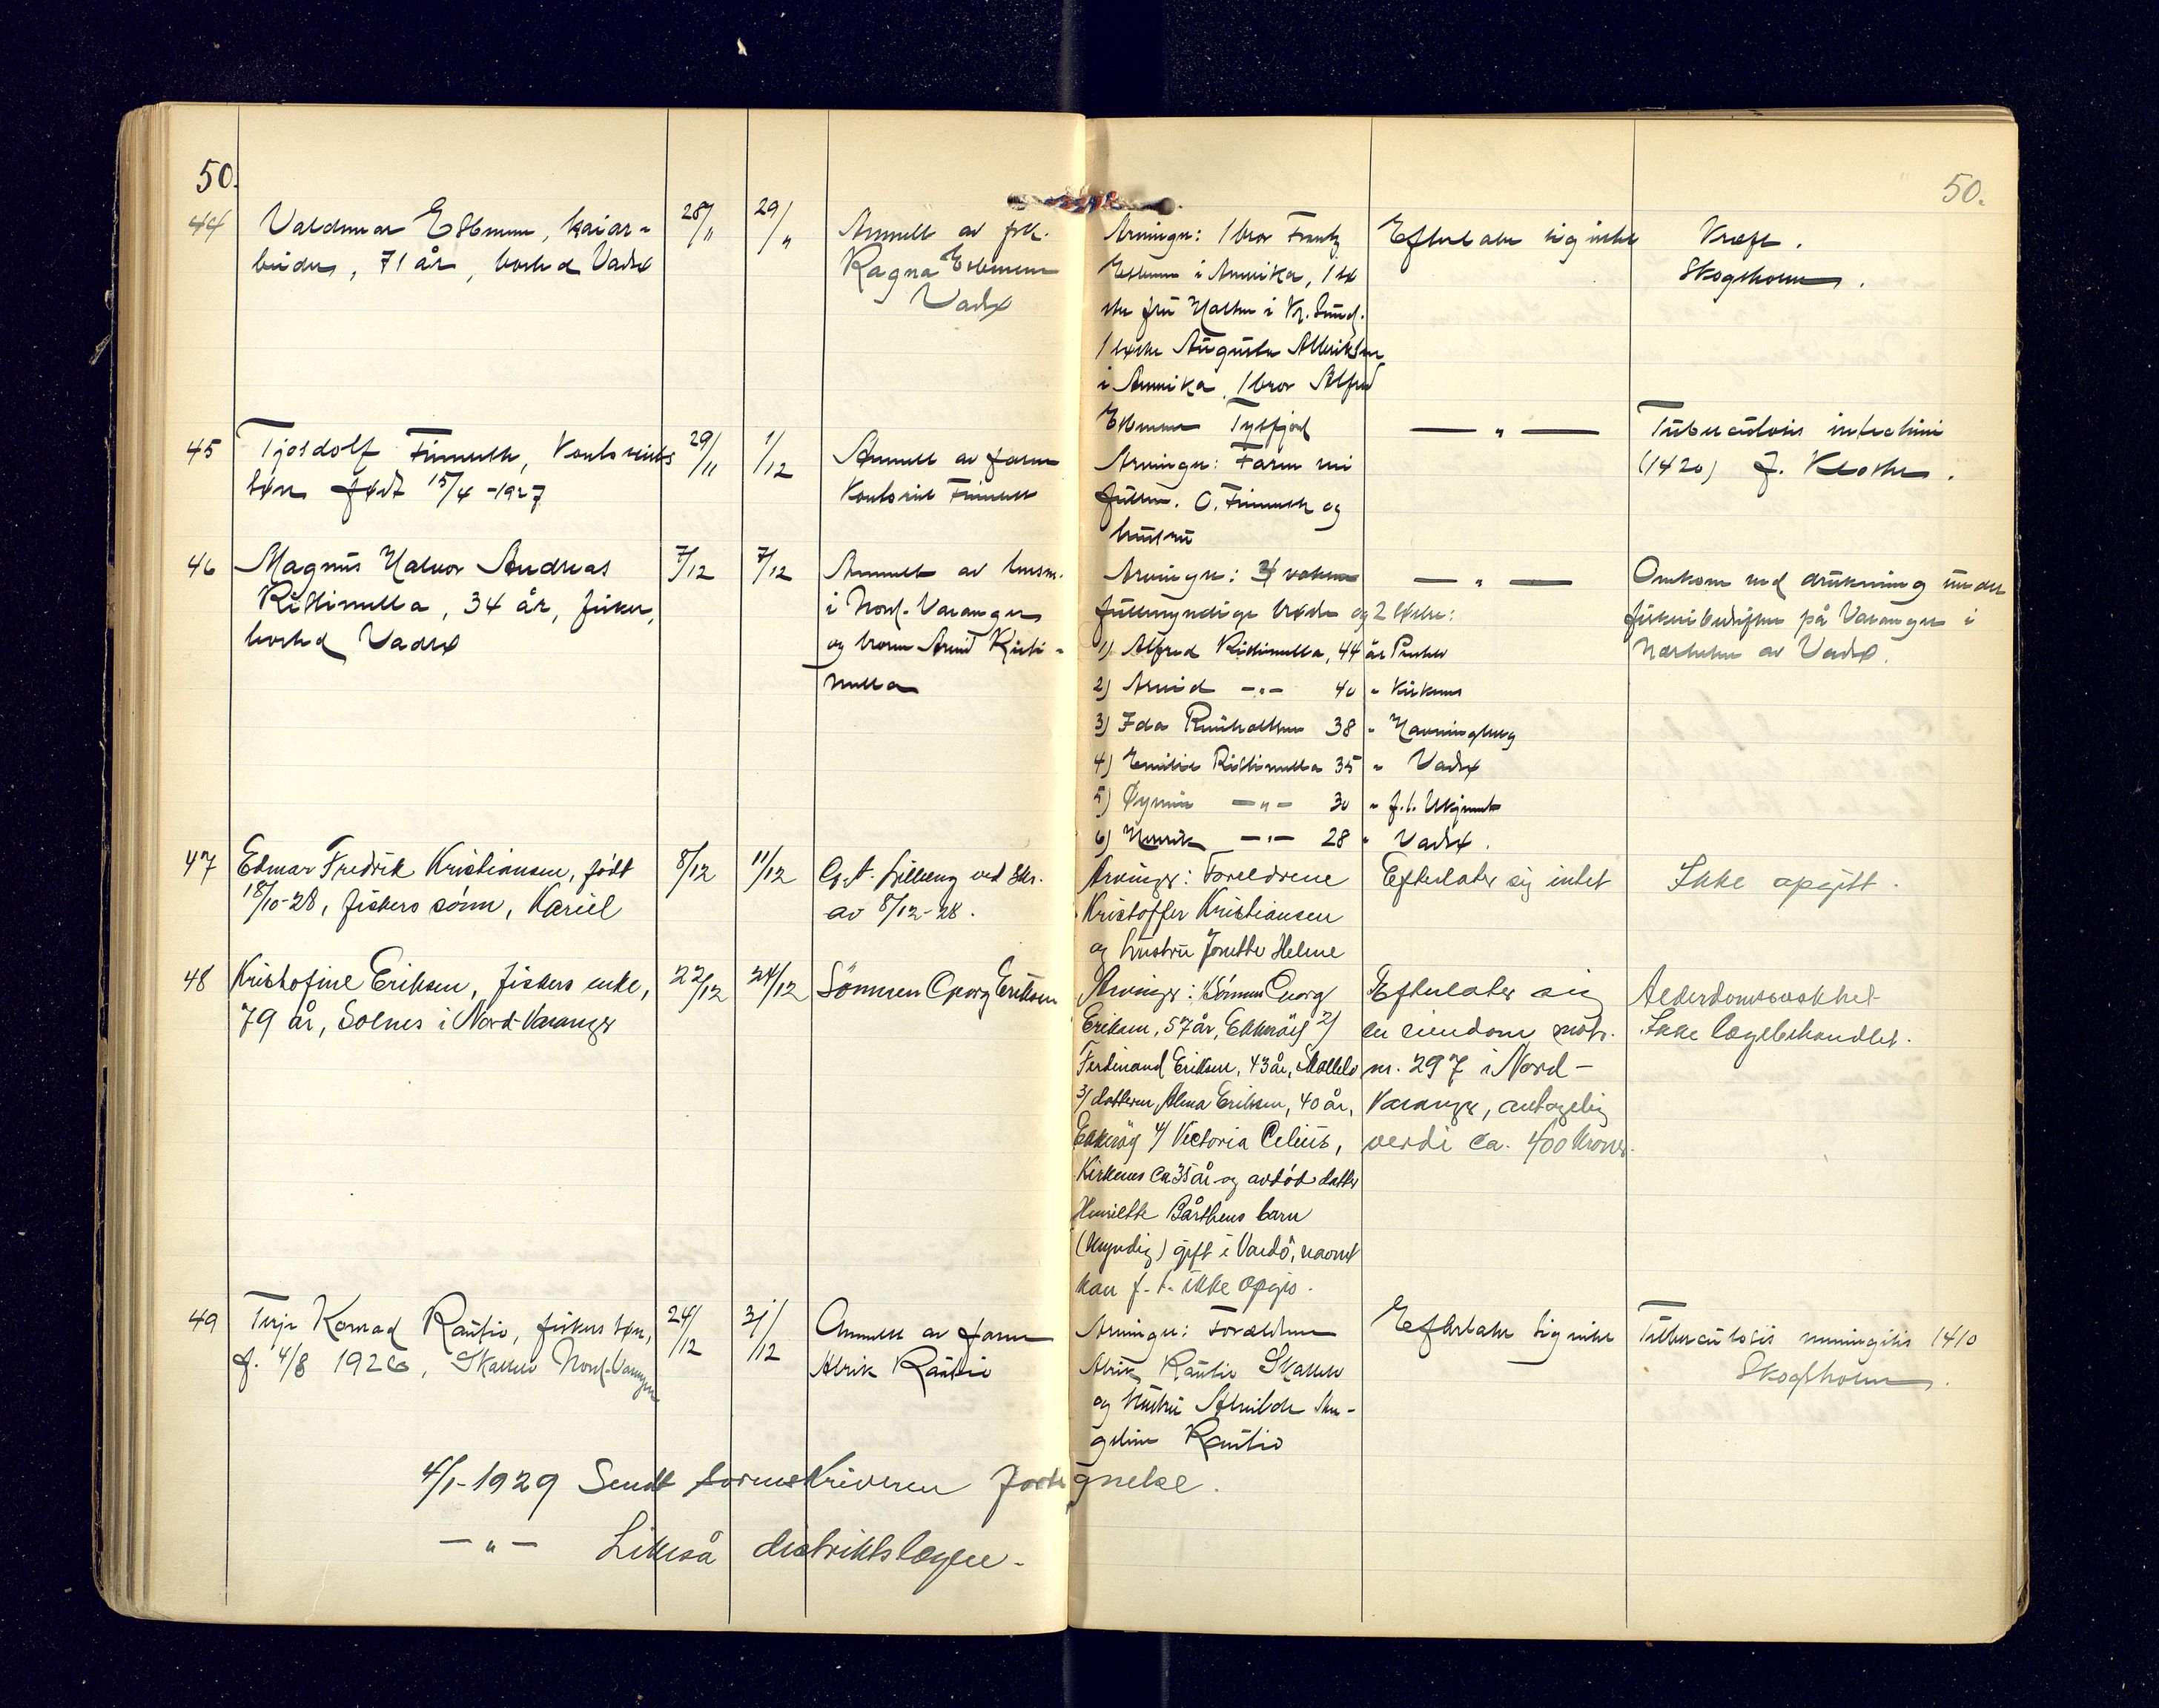 50.
50.
44 Valdemar Ebbesen, kaiar-
beider, 71 år, bosted Vadsø
28/11
29/"
Anmeldt av frk.
Ragna
Vadsø
Arvinger: 1 bror Frantz
i Amerika, 1 sø
ster fru i Kr.sund.
1 søster Augusta
i Amerika, 1 bror Alfred
Tysfjord
Efterlater sig intet
Kræft.
Skogsholm.
45 Finseth, kontorists
søn født 15/4-1927
29/11
1/12
Anmeldt av faren
kontorist Finseth
Arvinger: Faren mi
O. Finseth og
hustru
— " —
Tuberculosis intestini
(1420) J. Kloster.
46 Magnus Halvor Andreas
Ristimella, 34 år, fisker,
bosted Vadsø
7/12
7/12
Anmeldt av lensm.
i Nord-Varanger
og broren Arvid Risti-
mella
Arvinger: 4 voksne
fuldmyndige brødre og 2 søstre:
1) Alfred Ristimella, 44 år
2) Arvid —"— 40 " Kirkenes
3) Ida 38 " Havningberg
4) Emilie Ristimella 35 " Vadsø
5) —"— 30 " f.t. Ukjendt
6) Henrik —"— 28 " Vadsø.
— " —
Omkom ved drukning under
fiskeribedriften på Varanger i
Nærheten av Vadsø.
47 Edmar Fredrik Kristiansen, født
18/10-28, fiskers sønn, Kariel
8/12
11/12
O.A. Lilleeng ved skr.
av 8/12-28.
Arvinger: Foreldrene
Kristoffer Kristiansen
og hustru Jonette Helene
Efterlater sig intet
Ikke opgitt.
48 Kristofine Eriksen, fiskers enke,
79 år, Solnes i Nord-Varanger
22/12
24/12
Sønnen Georg Eriksen
Arvinger: Sønnen Georg
Eriksen, 57 år, Ekkerøy 2/
Ferdinand Eriksen, 43 år, Skallelv
3/ datteren Alma Eriksen, 40 år,
Ekkerøy 4/ Victoria Celius,
Kirkenes ca 35 år og avdød datter
Henriette Bårdsens barn
(Myndig) gift i Vardö, navnet
kan f.t. ikke opgis.
Efterlater sig
en eiendom matr.
nr. 297 i Nord-
Varanger, antagelig
verdi ca. 400 kroner.
Alderdomssvakhet.
Ikke lægebehandlet.
49 Terje Konrad Rautio, fiskers søn,
f. 4/8 1926, Skallelv Nord-Varanger
24/12
31/12
Anmeldt av faren
Alrik Rautio
Arvinger: Forældrene
Alrik Rautio Skallelv
og hustru
Rautio
Efterlater sig intet
Tuberculosis meningitis 1410
Skogsholm.
4/1-1929 Sendt sorenskriveren fortegnelse.
— " — Likeså distriktslægen.